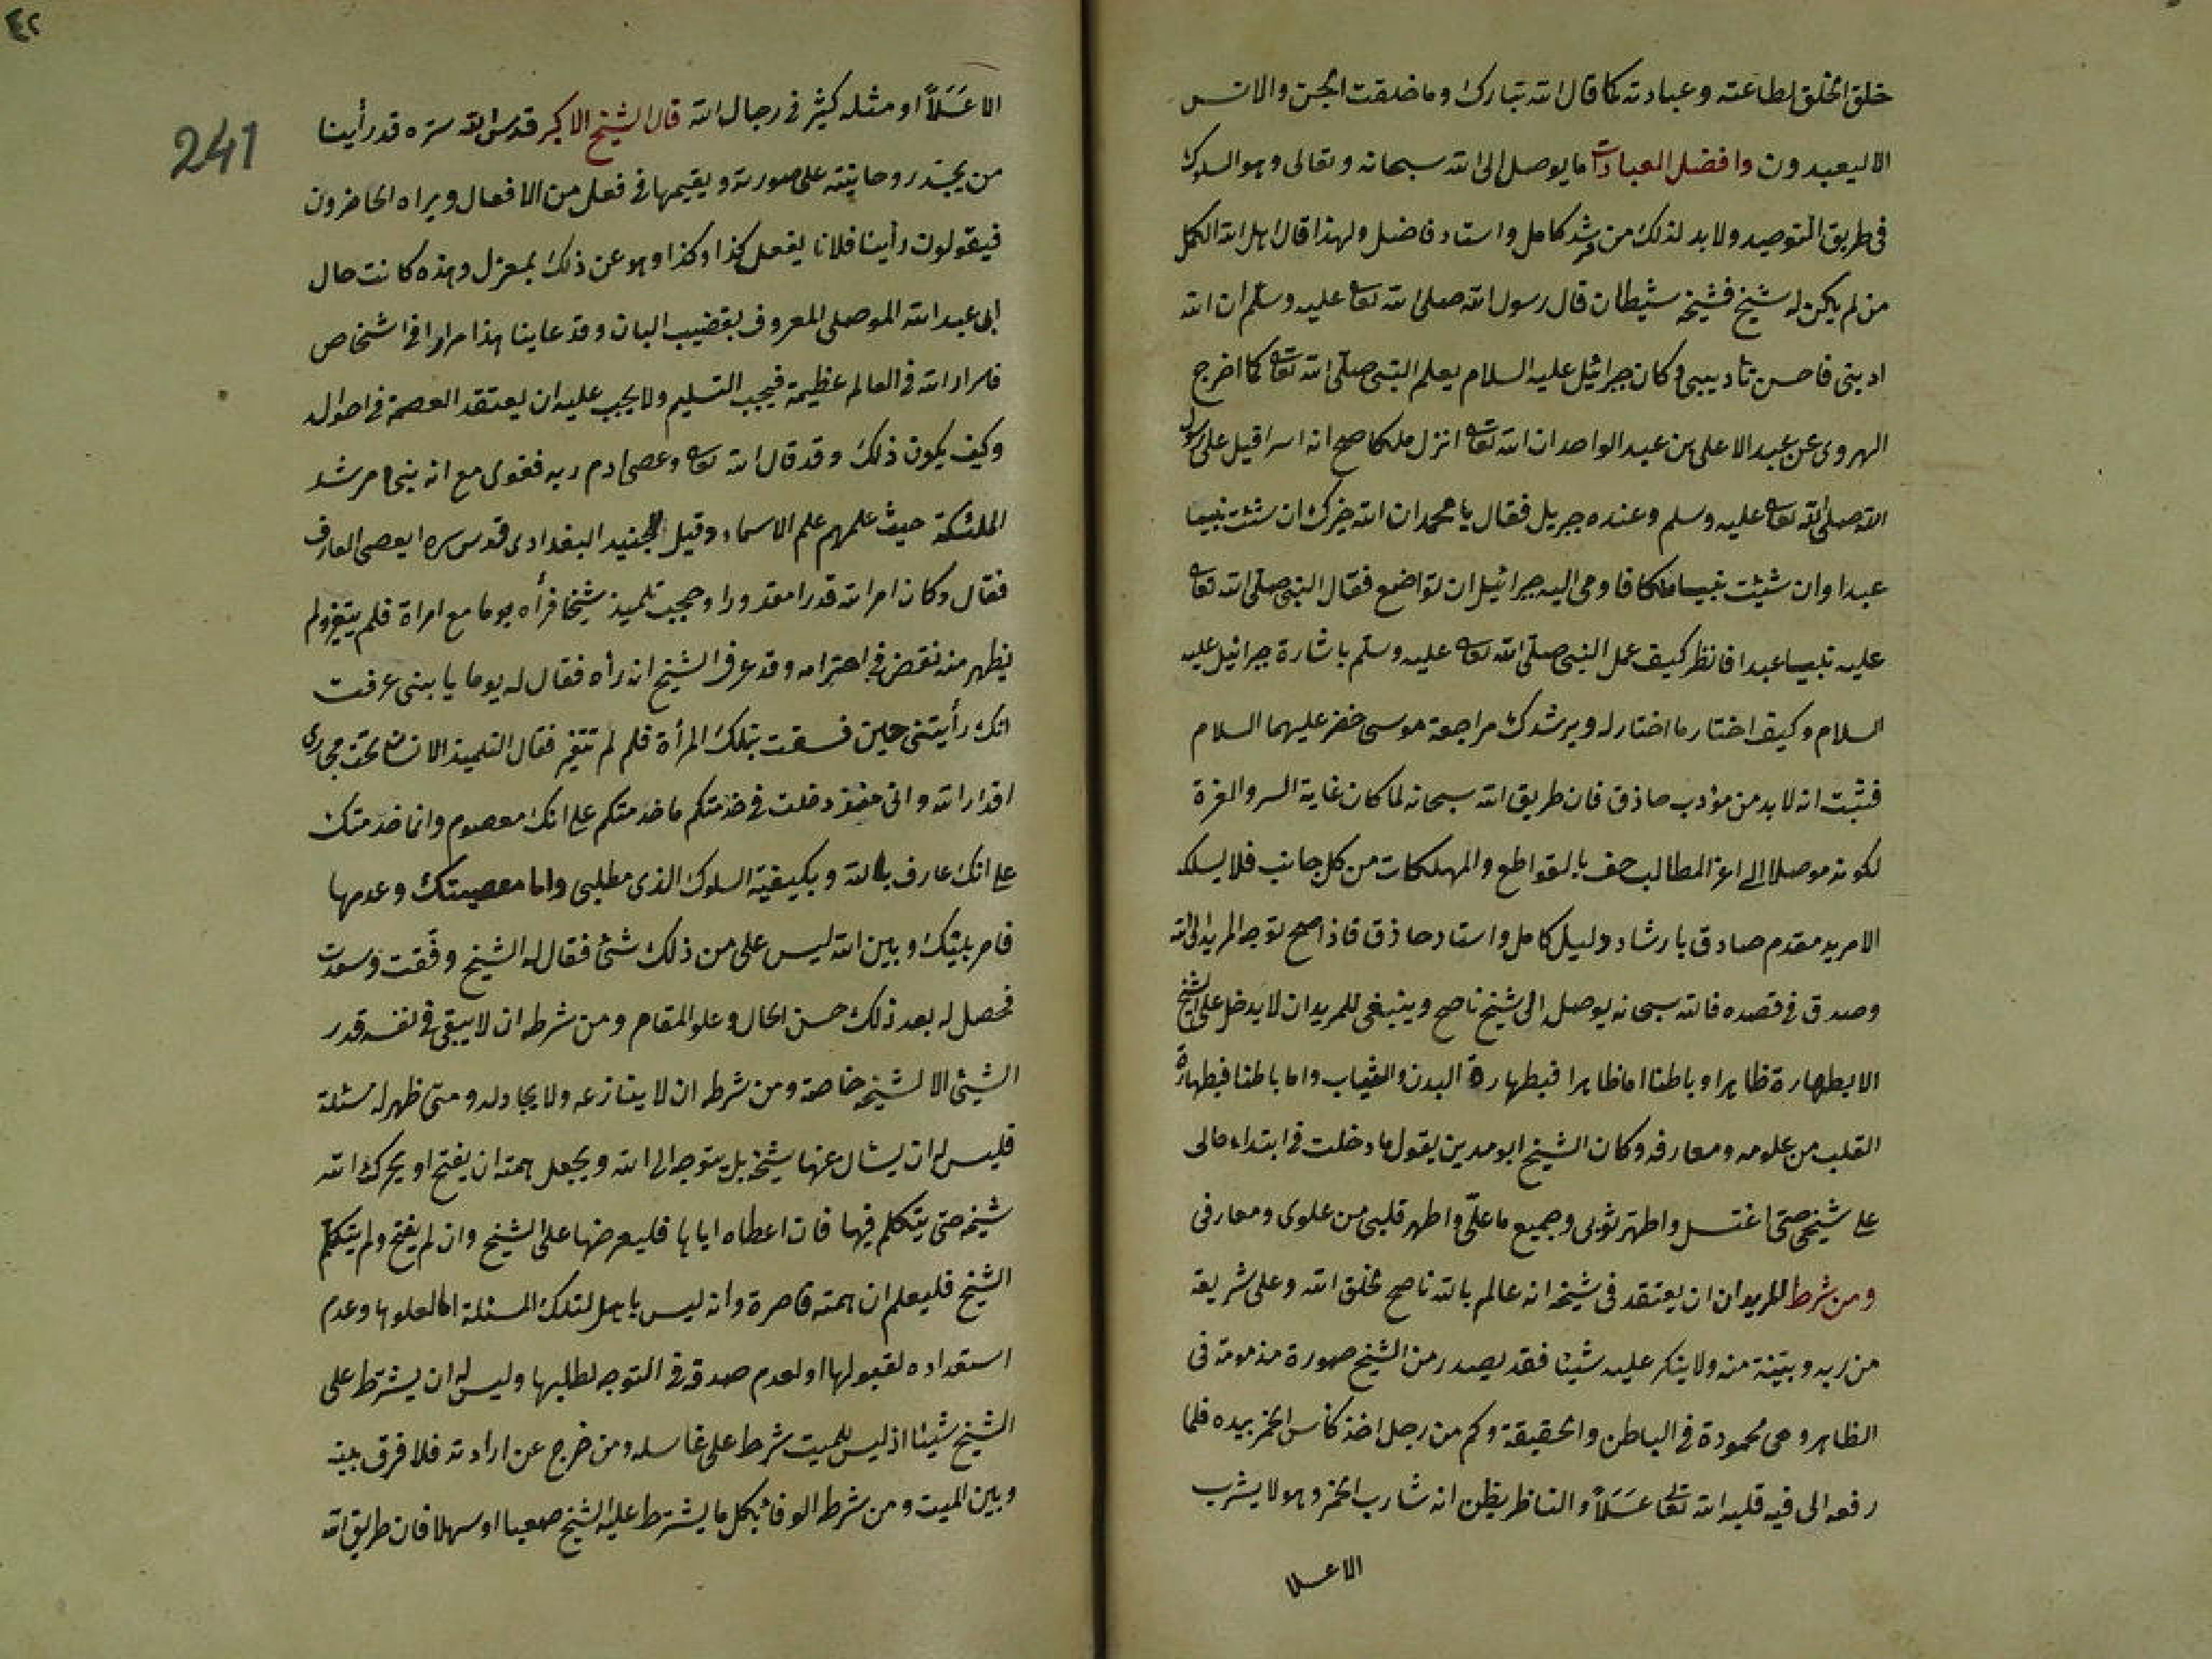 خلق الخلق لطاعته وعبادته كما قال الله تبارك وما خلقت الجن والانس
الا ليعبدون وافضل العبادات ما يوصل الى الله سبحانه وتعالى وهو السلوك
فى طريق التوحيد ولا بد لذلك من مرشد كامل واستاد فاضل ولهذا قال اهل الله الكمل
من لم يكن له شيخ فشيخه شيطان قال رسول الله صلى الله تعا عليه وسلم ان الله
ادبنى فاحسن تأديبى وكان جبرائيل عليه السلام يعلم النبى صلى الله تعا كما اخرج
الهروى عن عبد الاعلى بن عبد الواحد ان الله تعا انزل ملكا صح انه اسرافيل على رسول
الله صلى الله تعا عليه وسلم وعنده جبريل فقال يا محمد ان الله خيرك ان شئت نبيا
عبدا وان شئت نبيا ملكا فاومى اليه جبرائيل ان تواضع فقال النبى صلى الله تعا
عليه نبيا عبدا فانظر كيف عمل النبى صلى الله تعا عليه وسلم باشارة جبرائيل عليه
السلام وكيف اختار ما اختار له ويرشدك مراجعة موسى خضر عليهما السلام
فثبت انه لا بد من مؤدب حاذق فان طريق الله سبحانه لما كان غاية السر والعزة
لكونه موصلا الى اعز المطالب حف بالقواطع والمهلكات من كل جانب فلا يسلكه
الا مريد مقدم صادق بارشاد دليل كامل واستاد حاذق فاذا صح توجه المريد الى الله
وصدق فى قصده فالله سبحانه يوصل الى شيخ ناصح وينبغى للمريد ان لا يدخل على الشيخ
الا بطهارة ظاهرا وباطنا اما ظاهرا فبطهارة البدن والثياب واما باطنا فبطهارة
القلب من علومه ومعارفه وكان الشيخ ابو مدين يقول ما دخلت فى ابتداء حالى
على شيخى حتى اغتسل واطهر ثوبى وجميع ما علىّ واطهر قلبى من علوى ومعارفى
ومن شرط المريد ان ان يعتقد فى شيخه انه عالم بالله ناصح لخلق الله وعلى شريعة
من ربه وبينة منه ولا ينكر عليه شيئا فقد يصدر من الشيخ صورة مذمومة فى
الظاهر وهى محمودة فى الباطن والحقيقة وكم من رجل اخذ كأس الخمر بيده فلما
رفعه الى فيه قلبه الله تعالى عسَلاً والناظر يظن انه شارب الخمر وهو لا يشرب
الا عسلا
٤٢
241
الا عَسَلاً او مثله كثير فى رجال الله قال الشيخ الاكبر قدس الله سره قد رأينا
من يجسد روحانيته على صورته ويقيمها فى فعل من الافعال ويراه الحاضرون
فيقولون رأينا فلانا يفعل كذا وكذا وهو عن ذلك بمعزل وهذه كانت حال
ابى عبد الله الموصلى المعروف بقضيب البان وقد عاينا هذا مرارا فى اشخاص
فاسرار الله فى العالم عظيمة فيجب التسليم ولا يجب عليه ان يعتقد العصمة فى احواله
وكيف يكون ذلك وقد قال الله تعا وعصى ادم ربه فغوى مع انه نبى مرشد
الملئكة حيث علمهم علم الاسماء وقيل للجنيد البغدادى قدس سره ايعصى العارف
فقال وكان امر الله قدرا مقدورا وصحب تلميذ شيخا فرأه يوما مع امراة فلم يتغير ولم
يظهر منه نقض فى احترامه وقد عرف الشيخ انه رأه فقال له يوما يا بنى عرفت
انك رأيتنى حين فسقت بتلك المرأة فلم لم تتغير فقال التلميذ الانسان تحت مجارى
اقدار الله وانى منذ دخلت فى خدمتكم ما خدمتكم على انك معصوم وانما خدمتك
على انك عارف بالله وبكيفية السلوك الذى مطلبى واما معصيتك وعدمها
فامر بينك وبين الله ليس على من ذلك شئ فقال له الشيخ وفقت وسعدت
فحصل له بعد ذلك حسن الحال وعلو المقام ومن شرطه ان لا يبقى فى نفسه قدر
الشئ الا لشيخه خاصة ومن شرطه ان لا ينازعه ولا يجادله ومتى ظهر له مسئلة
فليس له ان يسأل عنها شيخه بل يتوجه الى الله ويجعل همته ان يفتح او يحرك الله
شيخه حتى يتكلم فيها فان اعطاه اياها فليعرضها على الشيخ وان لم يفتح ولم يتكلم
الشيخ فليعلم ان همته قاصرة وانه ليس باهل لتلك المسئلة اما لعلوها وعدم
استعداده لقبولها او لعدم صدقه فى التوجه لطلبها وليس له ان يشترط على
الشيخ شيئا اذ ليس للميت شرط على غاسله ومن خرج عن ارادته فلا فرق بينه
وبين الميت ومن شرط الوفاء بكل ما يشترط عليه الشيخ صعبا او سهلا فان طريق الله